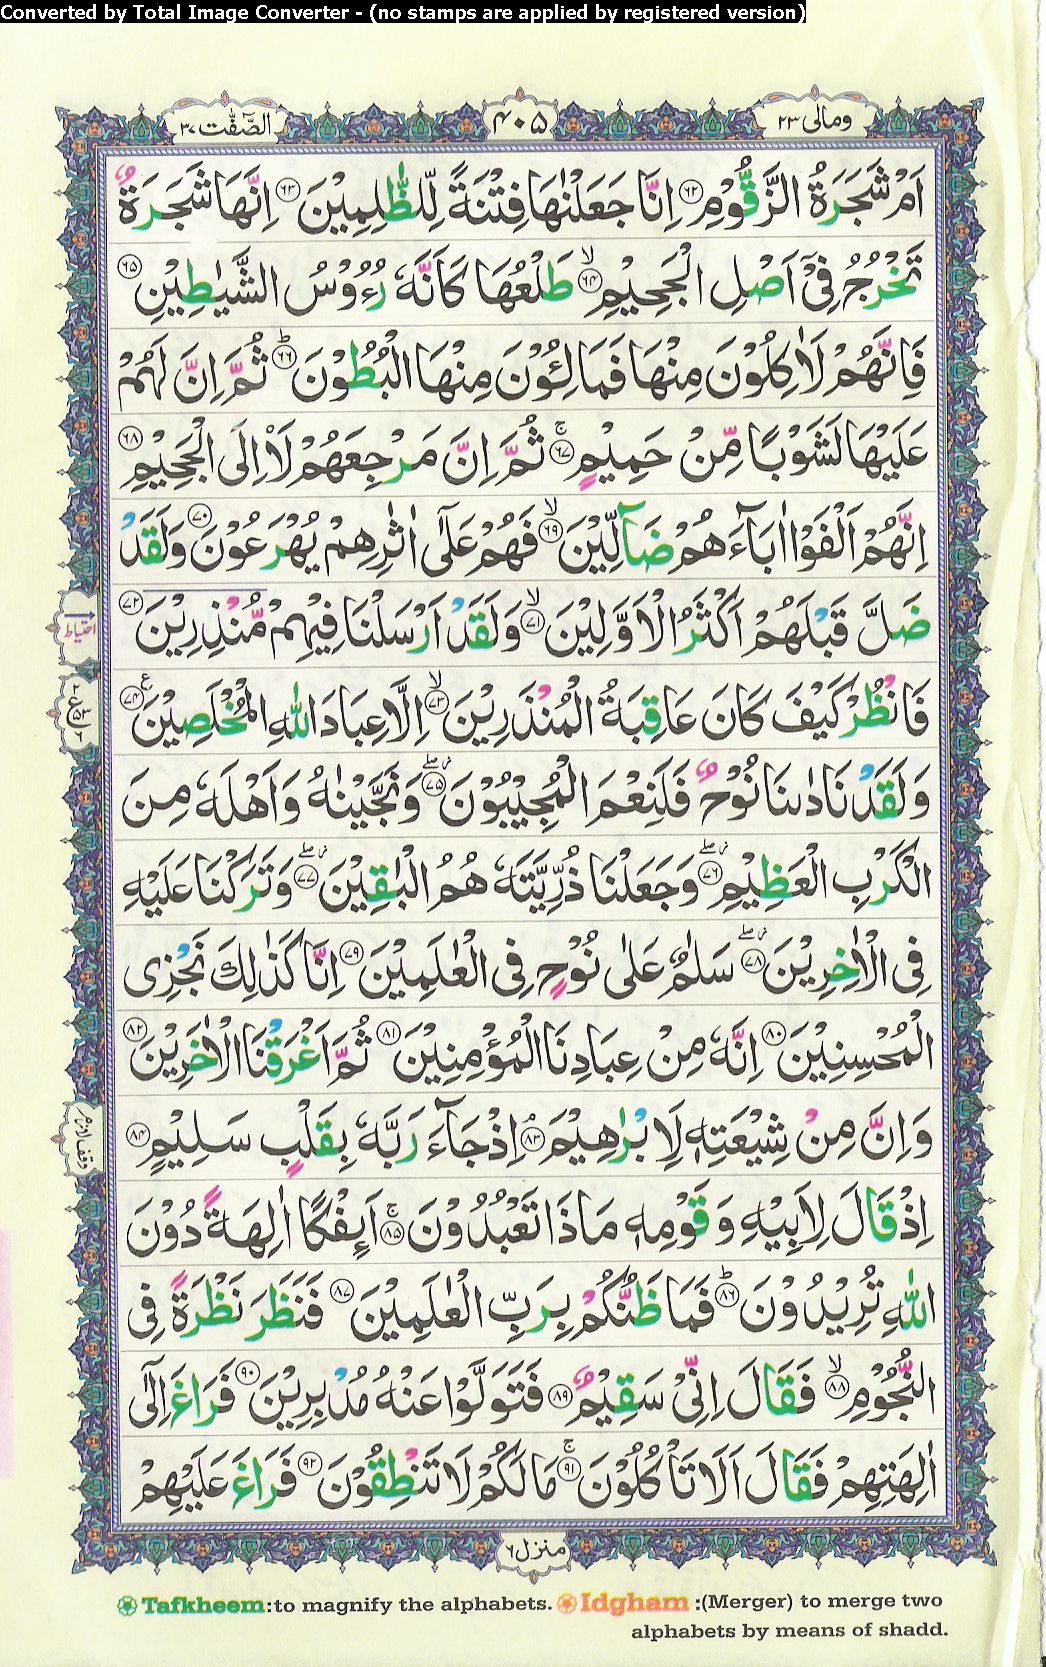 Converted by Total Image Converter - (no stamps are applied by registered version)
ومالی ۲۳
۴۰۵
الصّٰٓفّٰت ۳۷
اَمْ شَجَرَةُ الزَّقُّوْمِ ﴿۶۲﴾ اِنَّا جَعَلْنٰهَا فِتْنَةً لِّلظّٰلِمِيْنَ ﴿۶۳﴾ اِنَّهَا شَجَرَةٌ
تَخْرُجُ فِیْۤ اَصْلِ الْجَحِيْمِ ﴿۶۴﴾ۙ طَلْعُهَا كَاَنَّهٗ رُءُوْسُ الشَّيٰطِيْنِ ﴿۶۵﴾
فَاِنَّهُمْ لَاٰكِلُوْنَ مِنْهَا فَمَالِـُٔوْنَ مِنْهَا الْبُطُوْنَ ﴿۶۶﴾ؕ ثُمَّ اِنَّ لَهُمْ
عَلَيْهَا لَشَوْبًا مِّنْ حَمِيْمٍ ﴿۶۷﴾ۚ ثُمَّ اِنَّ مَرْجِعَهُمْ لَا۟اِلَی الْجَحِيْمِ ﴿۶۸﴾
اِنَّهُمْ اَلْفَوْا اٰبَآءَهُمْ ضَآلِّيْنَ ﴿۶۹﴾ۙ فَهُمْ عَلٰٓی اٰثٰرِهِمْ يُهْرَعُوْنَ ﴿۷۰﴾ وَلَقَدْ
ضَلَّ قَبْلَهُمْ اَكْثَرُ الْاَوَّلِيْنَ ﴿۷۱﴾ۙ وَلَقَدْ اَرْسَلْنَا فِيْهِمْ مُّنْذِرِيْنَ ﴿۷۲﴾
احتیاط
فَانْظُرْ كَيْفَ كَانَ عَاقِبَةُ الْمُنْذَرِيْنَ ﴿۷۳﴾ۙ اِلَّا عِبَادَ اللّٰهِ الْمُخْلَصِيْنَ ﴿۷۴﴾ع
وَلَقَدْ نَادٰىنَا نُوْحٌ فَلَنِعْمَ الْمُجِيْبُوْنَ ﴿۷۵﴾ۖ وَنَجَّيْنٰهُ وَاَهْلَهٗ مِنَ
الْكَرْبِ الْعَظِيْمِ ﴿۷۶﴾ۖ وَجَعَلْنَا ذُرِّيَّتَهٗ هُمُ الْبٰقِيْنَ ﴿۷۷﴾ۖ وَتَرَكْنَا عَلَيْهِ
فِی الْاٰخِرِيْنَ ﴿۷۸﴾ۖ سَلٰمٌ عَلٰی نُوْحٍ فِی الْعٰلَمِيْنَ ﴿۷۹﴾ اِنَّا كَذٰلِكَ نَجْزِی
الْمُحْسِنِيْنَ ﴿۸۰﴾ اِنَّهٗ مِنْ عِبَادِنَا الْمُؤْمِنِيْنَ ﴿۸۱﴾ ثُمَّ اَغْرَقْنَا الْاٰخَرِيْنَ ﴿۸۲﴾
وَاِنَّ مِنْ شِيْعَتِهٖ لَاِبْرٰهِيْمَ ﴿۸۳﴾ۘ اِذْ جَآءَ رَبَّهٗ بِقَلْبٍ سَلِيْمٍ ﴿۸۴﴾
وقف لازم
اِذْ قَالَ لِاَبِيْهِ وَقَوْمِهٖ مَاذَا تَعْبُدُوْنَ ﴿۸۵﴾ۚ اَئِفْكًا اٰلِهَةً دُوْنَ
اللّٰهِ تُرِيْدُوْنَ ﴿۸۶﴾ؕ فَمَا ظَنُّكُمْ بِرَبِّ الْعٰلَمِيْنَ ﴿۸۷﴾ فَنَظَرَ نَظْرَةً فِی
النُّجُوْمِ ﴿۸۸﴾ۙ فَقَالَ اِنِّیْ سَقِيْمٌ ﴿۸۹﴾ فَتَوَلَّوْا عَنْهُ مُدْبِرِيْنَ ﴿۹۰﴾ فَرَاغَ اِلٰٓی
اٰلِهَتِهِمْ فَقَالَ اَلَا تَاْكُلُوْنَ ﴿۹۱﴾ۚ مَا لَكُمْ لَا تَنْطِقُوْنَ ﴿۹۲﴾ فَرَاغَ عَلَيْهِمْ
منزل ۶
Tafkheem:to magnify the alphabets. Idgham :(Merger) to merge two
alphabets by means of shadd.